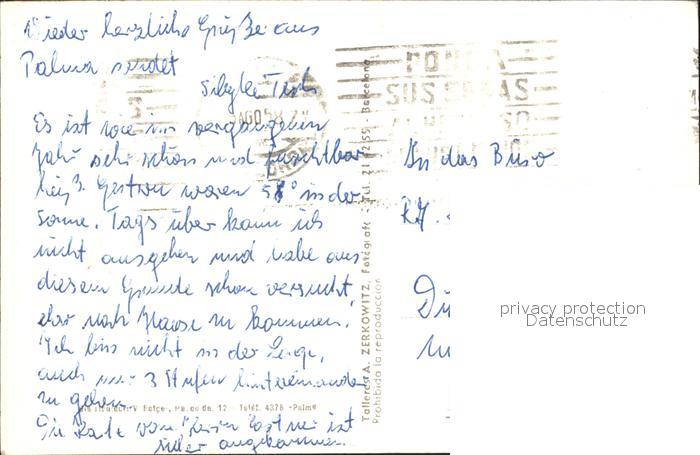 Wieder herzliche Grüße aus
Palma sendet
Sibylle
Es ist wie im vergangenen
Jahr sehr schön und furchtbar
heiß. Gestern waren 58° in der
Sonne. Tags über kann ich
nicht ausgehen und habe aus
diesem Grunde schon versucht,
eher nach Hause zu kommen.
Ich bin nicht in der Lage,
auch nur 3 Stufen hintereinander
zu gehen.
Die Karte von ist
hier angekommen.
AGO 58
PONGA
SUS SEÑAS
Talleres A. ZERKOWITZ, Fotógrafo - Barcelona
Prohibida la reproducción
12 - Teléf. 4376 - Palma
An das Büro
privacy protection
Datenschutz